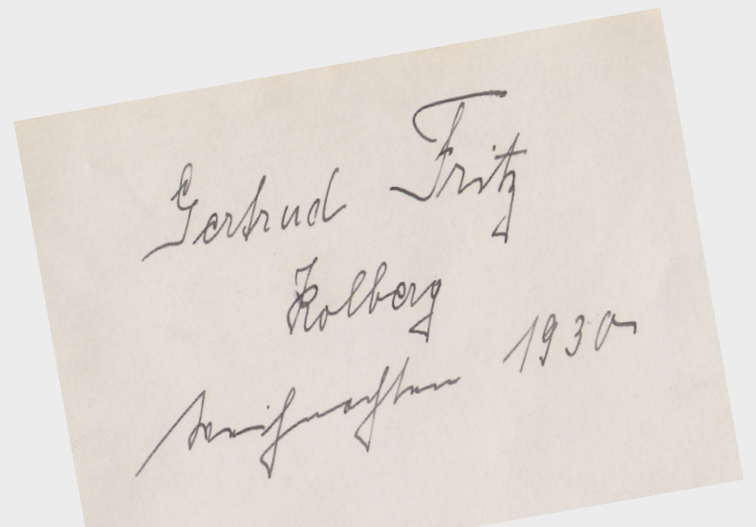 Gertrud Fritz
Kolberg
Weihnachten 1930